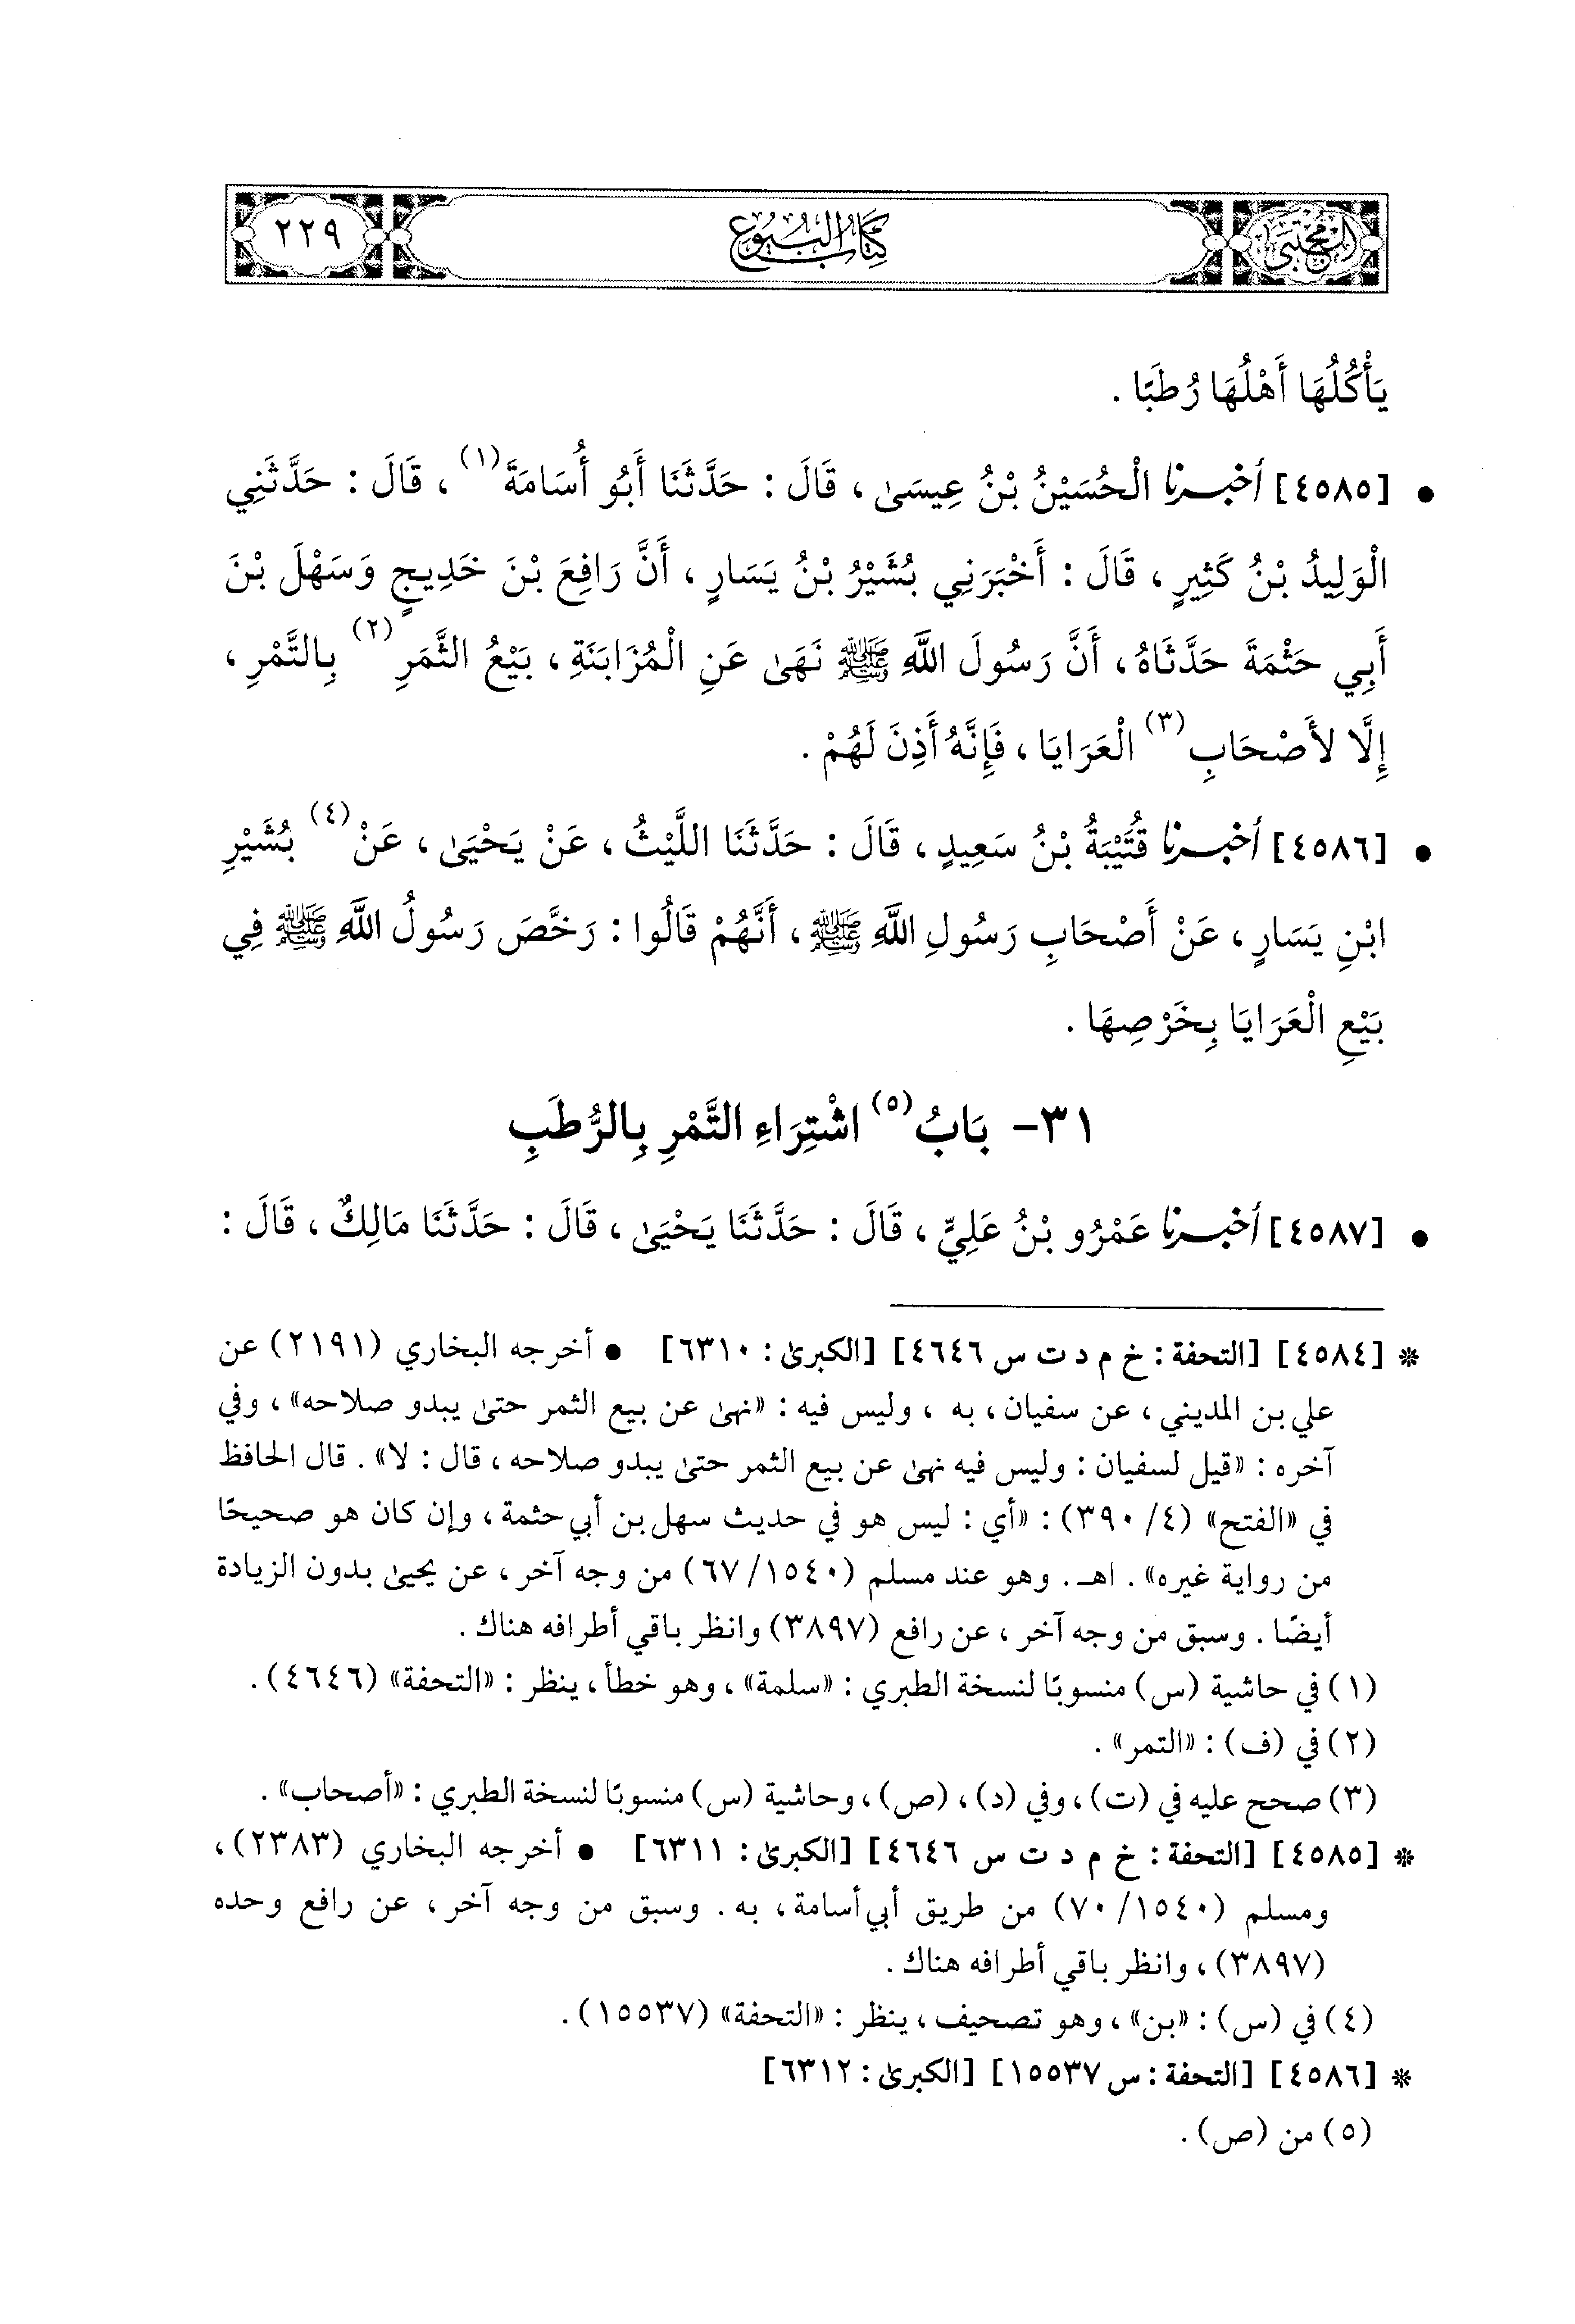 المجتبى
كتاب البيوع
٢٢٩
يَأْكُلُهَا أَهْلُهَا رُطَبًا .
• [٤٥٨٥] أخبرنا الْحُسَيْنُ بْنُ عِيسَىٰ ، قَالَ : حَدَّثَنَا أَبُو أُسَامَةَ(١) ، قَالَ : حَدَّثَنِي
الْوَلِيدُ بْنُ كَثِيرٍ ، قَالَ : أَخْبَرَنِي بُشَيْرُ بْنُ يَسَارٍ ، أَنَّ رَافِعَ بْنَ خَدِيجٍ وَسَهْلَ بْنَ
أَبِي حَثْمَةَ حَدَّثَاهُ ، أَنَّ رَسُولَ اللَّهِ ﷺ نَهَىٰ عَنِ الْمُزَابَنَةِ ، بَيْعُ الثَّمَرِ(٢) بِالتَّمْرِ ،
إِلَّا لأَصْحَابِ(٣) الْعَرَايَا ، فَإِنَّهُ أَذِنَ لَهُمْ .
• [٤٥٨٦] أخبرنا قُتَيْبَةُ بْنُ سَعِيدٍ ، قَالَ : حَدَّثَنَا اللَّيْثُ ، عَنْ يَحْيَىٰ ، عَنْ(٤) بُشَيْرِ
ابْنِ يَسَارٍ ، عَنْ أَصْحَابِ رَسُولِ اللَّهِ ﷺ ، أَنَّهُمْ قَالُوا : رَخَّصَ رَسُولُ اللَّهِ ﷺ فِي
بَيْعِ الْعَرَايَا بِخَرْصِهَا .
٣١- بَابُ(٥) اشْتِرَاءِ التَّمْرِ بِالرُّطَبِ
• [٤٥٨٧] أخبرنا عَمْرُو بْنُ عَلِيٍّ ، قَالَ : حَدَّثَنَا يَحْيَىٰ ، قَالَ : حَدَّثَنَا مَالِكٌ ، قَالَ :
* [٤٥٨٤] [التحفة : خ م د ت س ٤٦٤٦] [الكبرىٰ : ٦٣١٠] • أخرجه البخاري (٢١٩١) عن
علي بن المديني ، عن سفيان ، به ، وليس فيه : «نهىٰ عن بيع الثمر حتىٰ يبدو صلاحه» ، وفي
آخره : «قيل لسفيان : وليس فيه نهىٰ عن بيع الثمر حتىٰ يبدو صلاحه ، قال : لا» . قال الحافظ
في «الفتح» (٤/ ٣٩٠) : «أي : ليس هو في حديث سهل بن أبي حثمة ، وإن كان هو صحيحًا
من رواية غيره» . اهـ . وهو عند مسلم (١٥٤٠/ ٦٧) من وجه آخر ، عن يحيىٰ بدون الزيادة
أيضًا . وسبق من وجه آخر ، عن رافع (٣٨٩٧) وانظر باقي أطرافه هناك .
(١) في حاشية (س) منسوبًا لنسخة الطبري : «سلمة» ، وهو خطأ ، ينظر : «التحفة» (٤٦٤٦) .
(٢) في (ف) : «التمر» .
(٣) صحح عليه في (ت) ، وفي (د) ، (ص) ، وحاشية (س) منسوبًا لنسخة الطبري : «أصحاب» .
* [٤٥٨٥] [التحفة : خ م د ت س ٤٦٤٦] [الكبرىٰ : ٦٣١١] • أخرجه البخاري (٢٣٨٣) ،
ومسلم (١٥٤٠/ ٧٠) من طريق أبي أسامة ، به . وسبق من وجه آخر ، عن رافع وحده
(٣٨٩٧) ، وانظر باقي أطرافه هناك .
(٤) في (س) : «بن» ، وهو تصحيف ، ينظر : «التحفة» (١٥٥٣٧) .
* [٤٥٨٦] [التحفة : س ١٥٥٣٧] [الكبرىٰ : ٦٣١٢]
(٥) من (ص) .